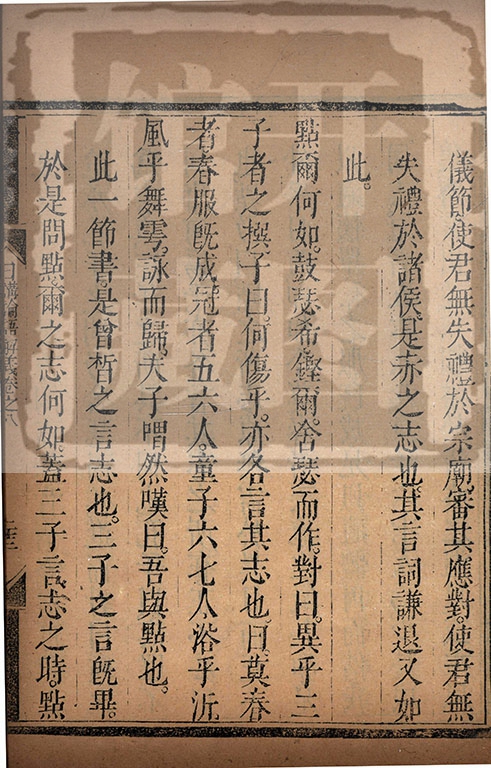 儀節。使君無失禮於宗廟。審其應對。使君無
失禮於諸侯。是赤之志也。其言詞謙退又如
此。
點爾何如。鼓瑟希。鏗爾。舍瑟而作。對曰。異乎三
子者之撰。子曰。何傷乎。亦各言其志也。曰。莫春
者。春服既成。冠者五六人。童子六七人。浴乎沂。
風乎舞雩。詠而歸。夫子喟然嘆曰。吾與點也。
此一節書。是曾晳之言志也。三子之言既畢。
於是問點。爾之志何如。蓋三子言志之時。點
日講論語解義卷之八